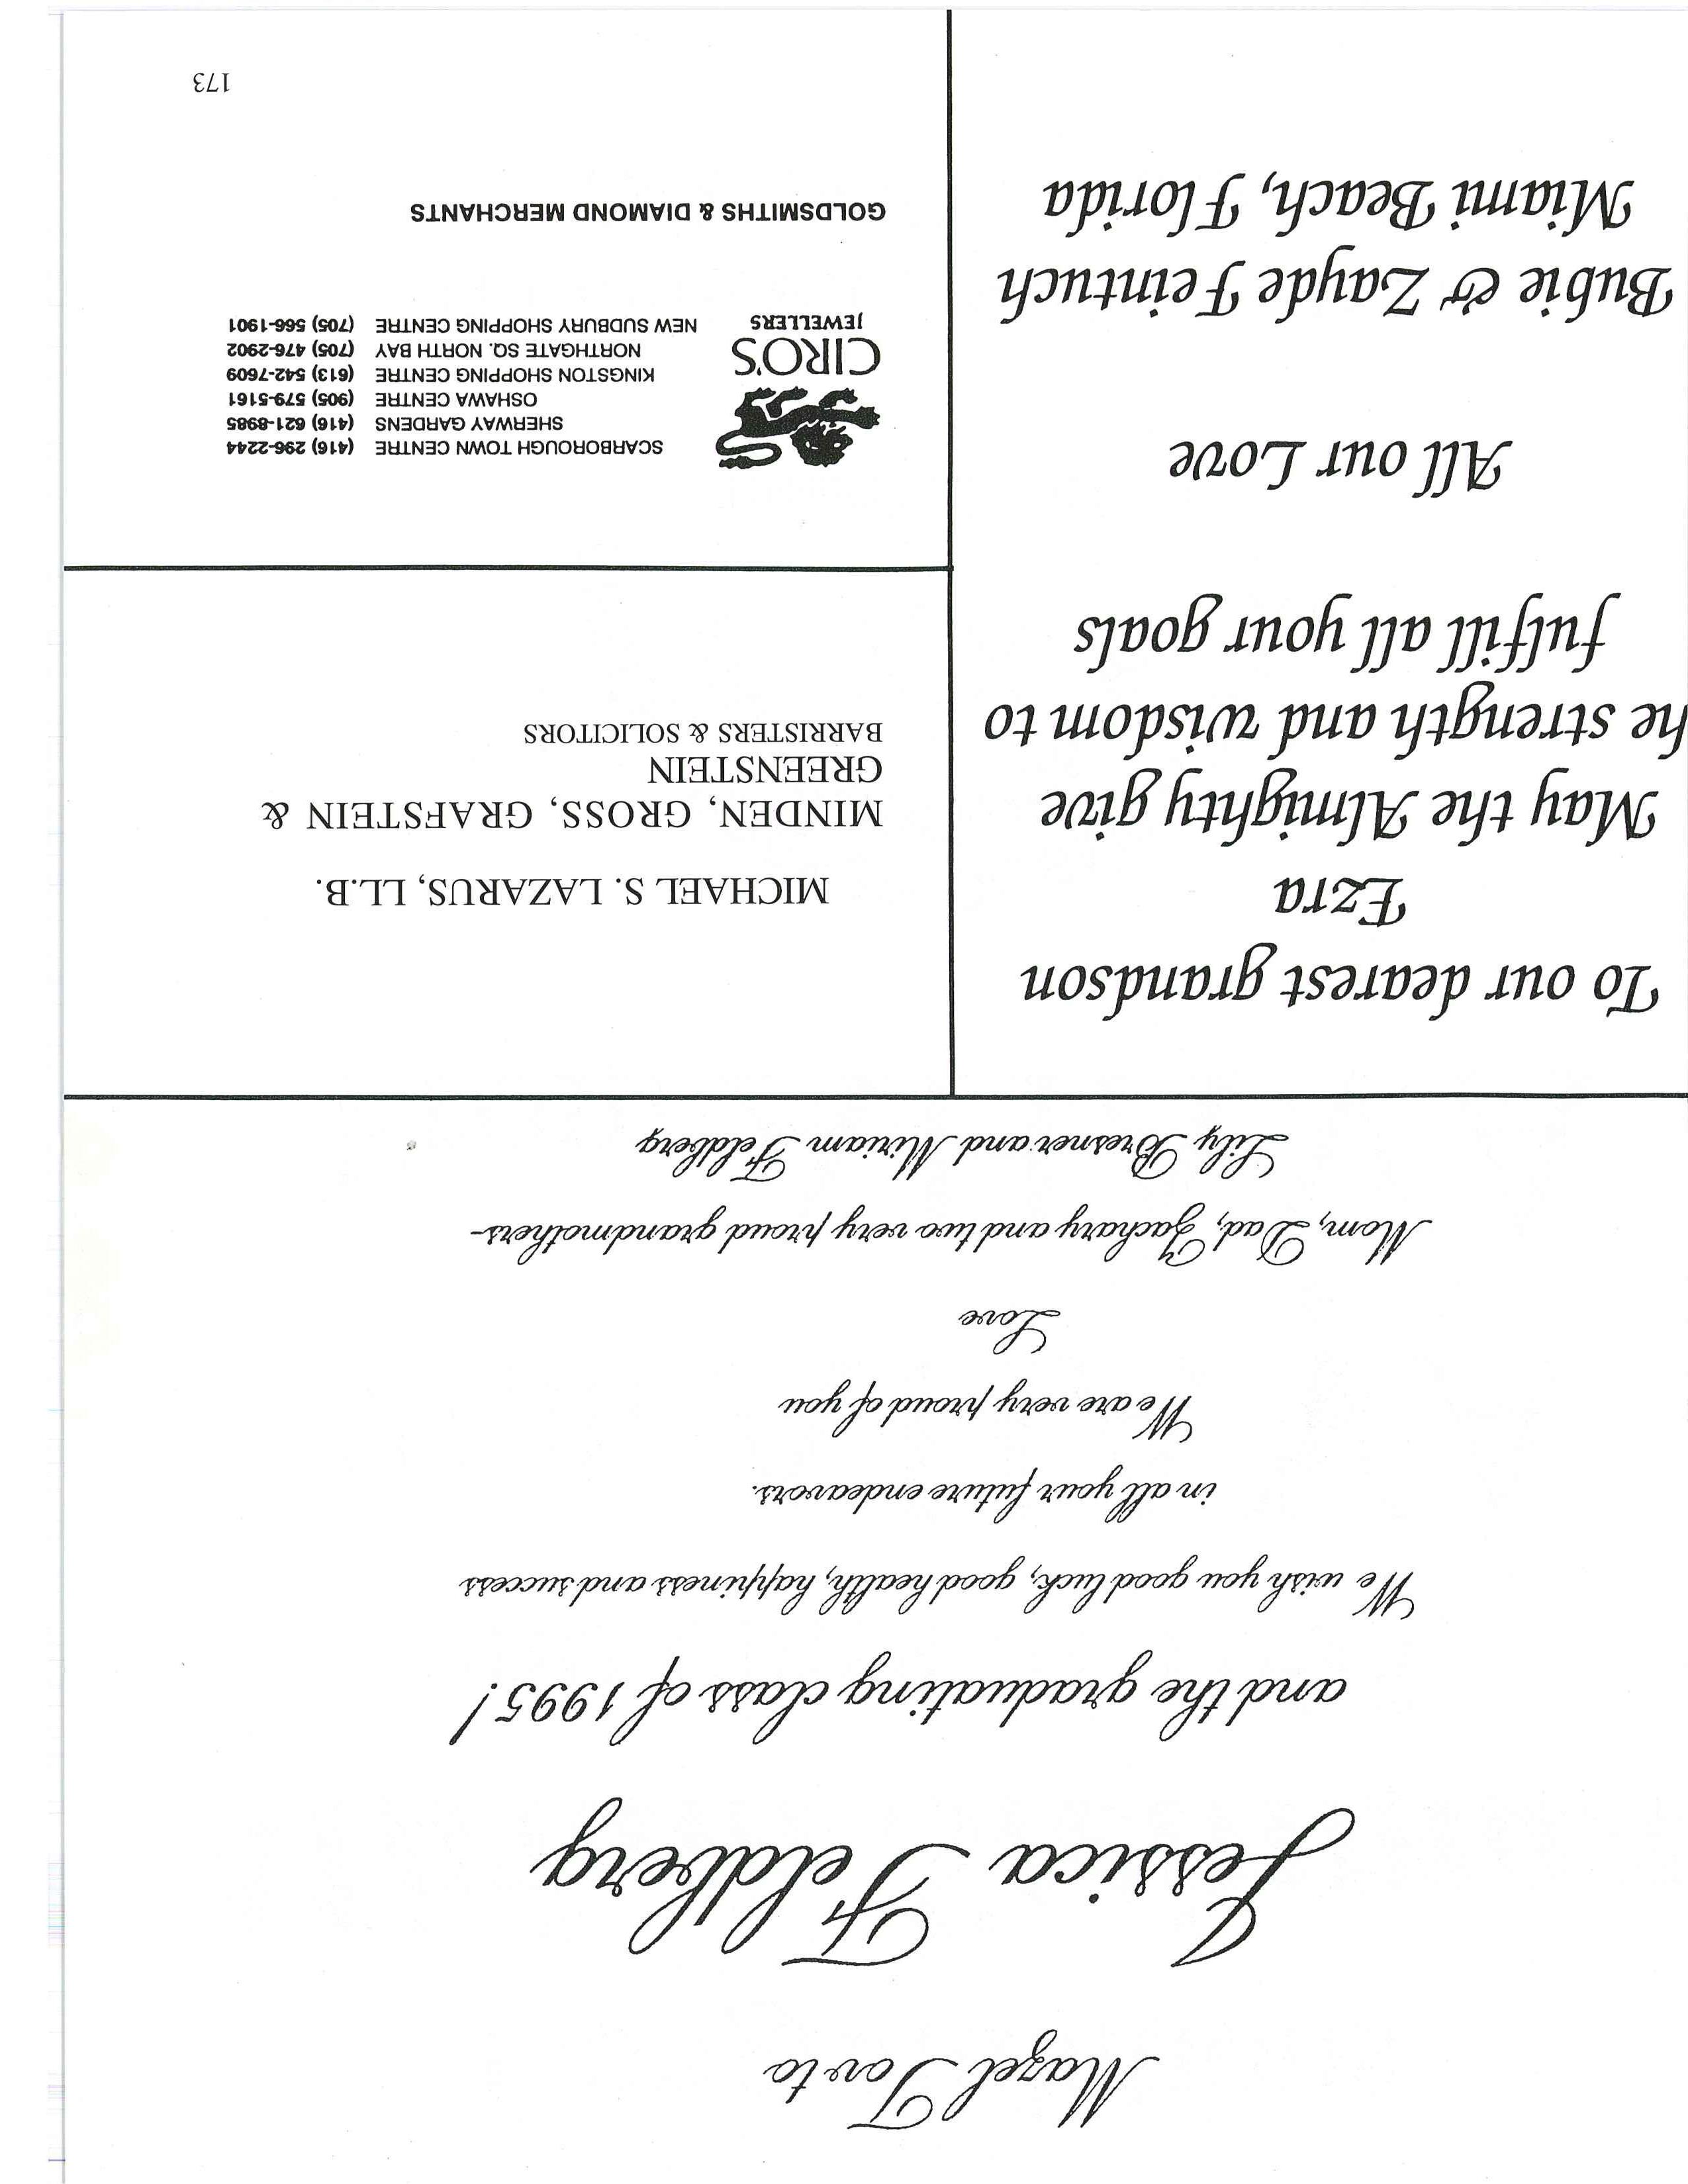 Mazel Tov to
Jessica Feldberg
and the graduating class of 1995!
We wish you good luck, good health, happiness and success
in all your future endeavors.
We are very proud of you
Love
Mom, Dad, Zachary and two very proud grandmothers-
Lily Bresner and Miriam Feldberg
To our dearest grandson
Ezra
May the Almighty give
he strength and wisdom to
fulfill all your goals
All our Love
Bubie & Zayde Feintuch
Miami Beach, Florida
MICHAEL S. LAZARUS, LL.B.
MINDEN, GROSS, GRAFSTEIN &
GREENSTEIN
BARRISTERS & SOLICITORS
CIRO'S
JEWELLERS
SCARBOROUGH TOWN CENTRE (416) 296-2244
SHERWAY GARDENS (416) 621-8985
OSHAWA CENTRE (905) 579-5161
KINGSTON SHOPPING CENTRE (613) 542-7609
NORTHGATE SQ. NORTH BAY (705) 476-2902
NEW SUDBURY SHOPPING CENTRE (705) 566-1901
GOLDSMITHS & DIAMOND MERCHANTS
173